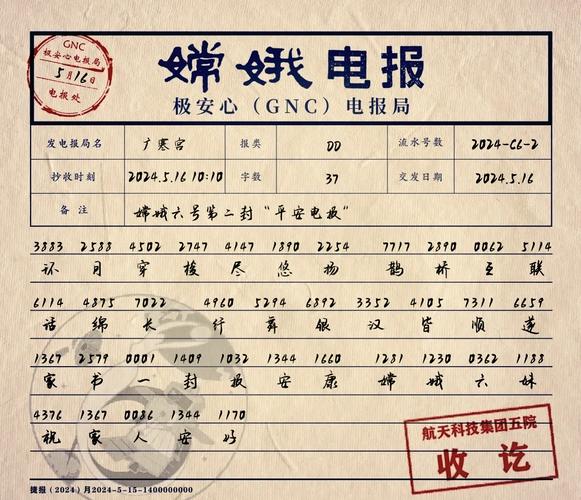 GNC
极安心电报局
5月16日
电报处
嫦娥电报
极安心（GNC）电报局
发电报局名 广寒宫 报类 DD 流水号数 2024-C6-2
抄收时刻 2024.5.16 10:10 字数 37 交发日期 2024.5.16
备注 嫦娥六号第二封“平安电报”
3883 2588 4502 2747 4147 1890 2254 7717 2890 0062 5114
环月穿梭尽悠扬 鹊桥互联
6114 4875 7022 4960 5294 6892 3352 4105 7311 6659
话绵长 行舞银汉皆顺遂
1367 2579 0001 1409 1032 1344 1660 1281 1230 0362 1188
家书一封报安康 嫦娥六妹
4376 1367 0086 1344 1170
祝家人安好
航天科技集团五院
收讫
捷报（2024）月2024-5-15-1400000000